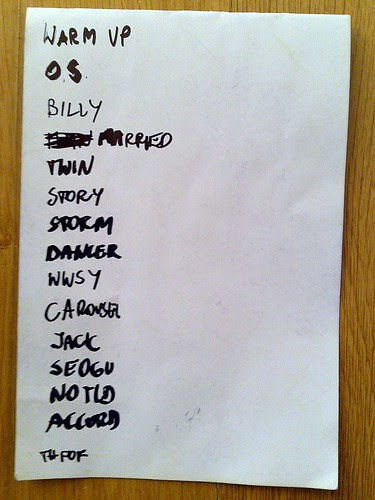 WARM UP
O.S.
BILLY
MARRIED
TWIN
STORY
STORM
DANCER
WWSY
CAROUSEL
JACK
SEOGU
NOTLD
ACCORD
THFOF